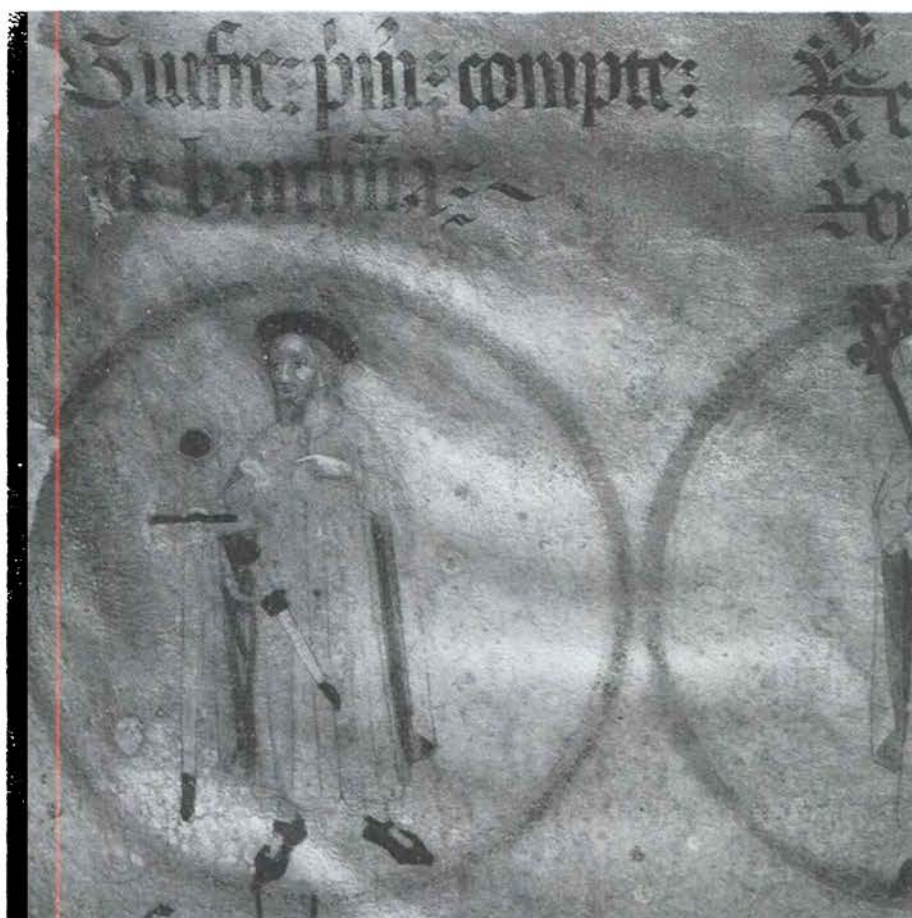 Guifre : p̄m̄ : compte :
de barchn̄a :